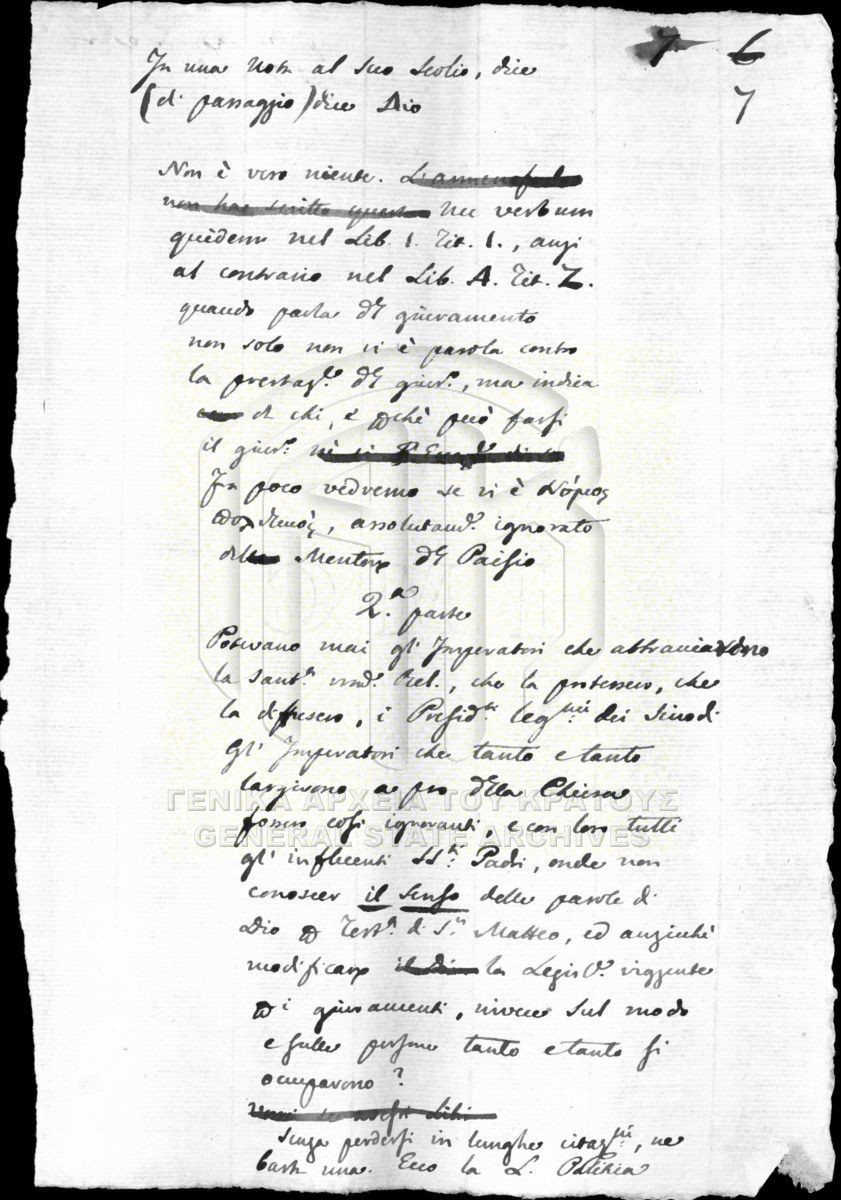 7 6
In una nota al suo Scolio, dice
(di passaggio) dice Dio
7
Non è vero niente. L'armenopulo
non hae scritto questo nec verbum
quidem nel Lib. 1. Tit. 1., anzi
al contrario nel Lib. A. Tit. Z.
quando parla del giuramento
non solo non vi è parola contro
la prestaz.e del giur.o, ma indica
di chi, e perchè può farsi
il giur.o
In poco vedremo se vi è Νόμος
πολιτικός, assolutam.e ignorato
dal Mentore del Paisio
2.a parte
Potevano mai gl' Imperatori che abbracciarono
la Sant.a Rel., che la protessero, che
la difesero, i Presid.ti leg.mi dei Sinodi
gl' Imperatori che tanto e tanto
largirono a pro della Chiesa
ΓΕΝΙΚΑ ΑΡΧΕΙΑ ΤΟΥ ΚΡΑΤΟΥΣ
fossero così ignoranti, e con loro tutti
GENERAL STATE ARCHIVES
gl' influenti SS.ti Padri, onde non
conoscer il senso delle parole di
Dio per Test.o di S.n Matteo, ed anzicchè
modificare la Legisl.e viggente
per i giuramenti, invece sul modo
e sulle persone tanto e tanto si
occuparono?
senza perdersi in lunghe citaz.ni, ne
basta una. Ecco la L.